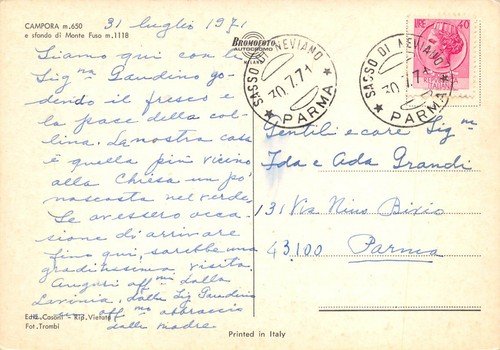 CAMPORA m.650
e sfondo di Monte Fuso m.1118
31 luglio 1971
BROMOFOTO
AUTOCROMO
MILANO
SASSO DI NEVIANO
30.7.71
PARMA
SASSO DI NEVIANO
30.7.71
PARMA
LIRE 40
Siamo qui con la
Sig.na Gaudino go-
dendo il fresco e
la pace della col-
lina. La nostra casa
è quella più vicino
alla Chiesa un po'
nascosta nel verde.
Se avessero occa-
sione di arrivare
fino qui, sarebbe una
graditissima visita.
Auguri aff.mi dalla
Lavinia, dalla Sig. Gaudino
aff.mo abbraccio
dalla madre
Gentili e care Sig.ne
Ida e Ada Grandi
131 Via Nino Bixio
43.100 Parma
Ediz. Casoni - Rip. Vietata
Fot. Trombi
Printed in Italy